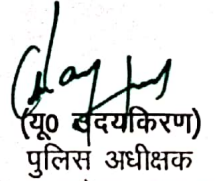 (यू० उदयकिरण)
पुलिस अधीक्षक